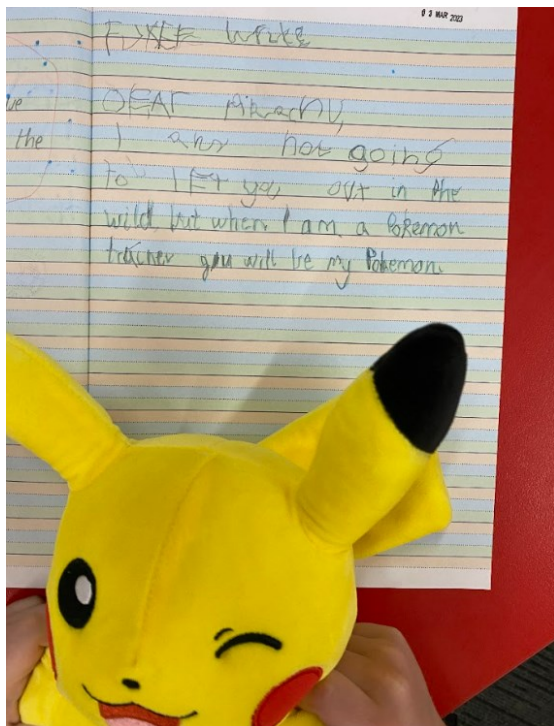 03 MAR 2023
FREE Write
DEAr Pikachu,
I am not going
to lEt you out in the
wild but when I am a Pokemon
tracher you will be my Pokemon.
ve
the